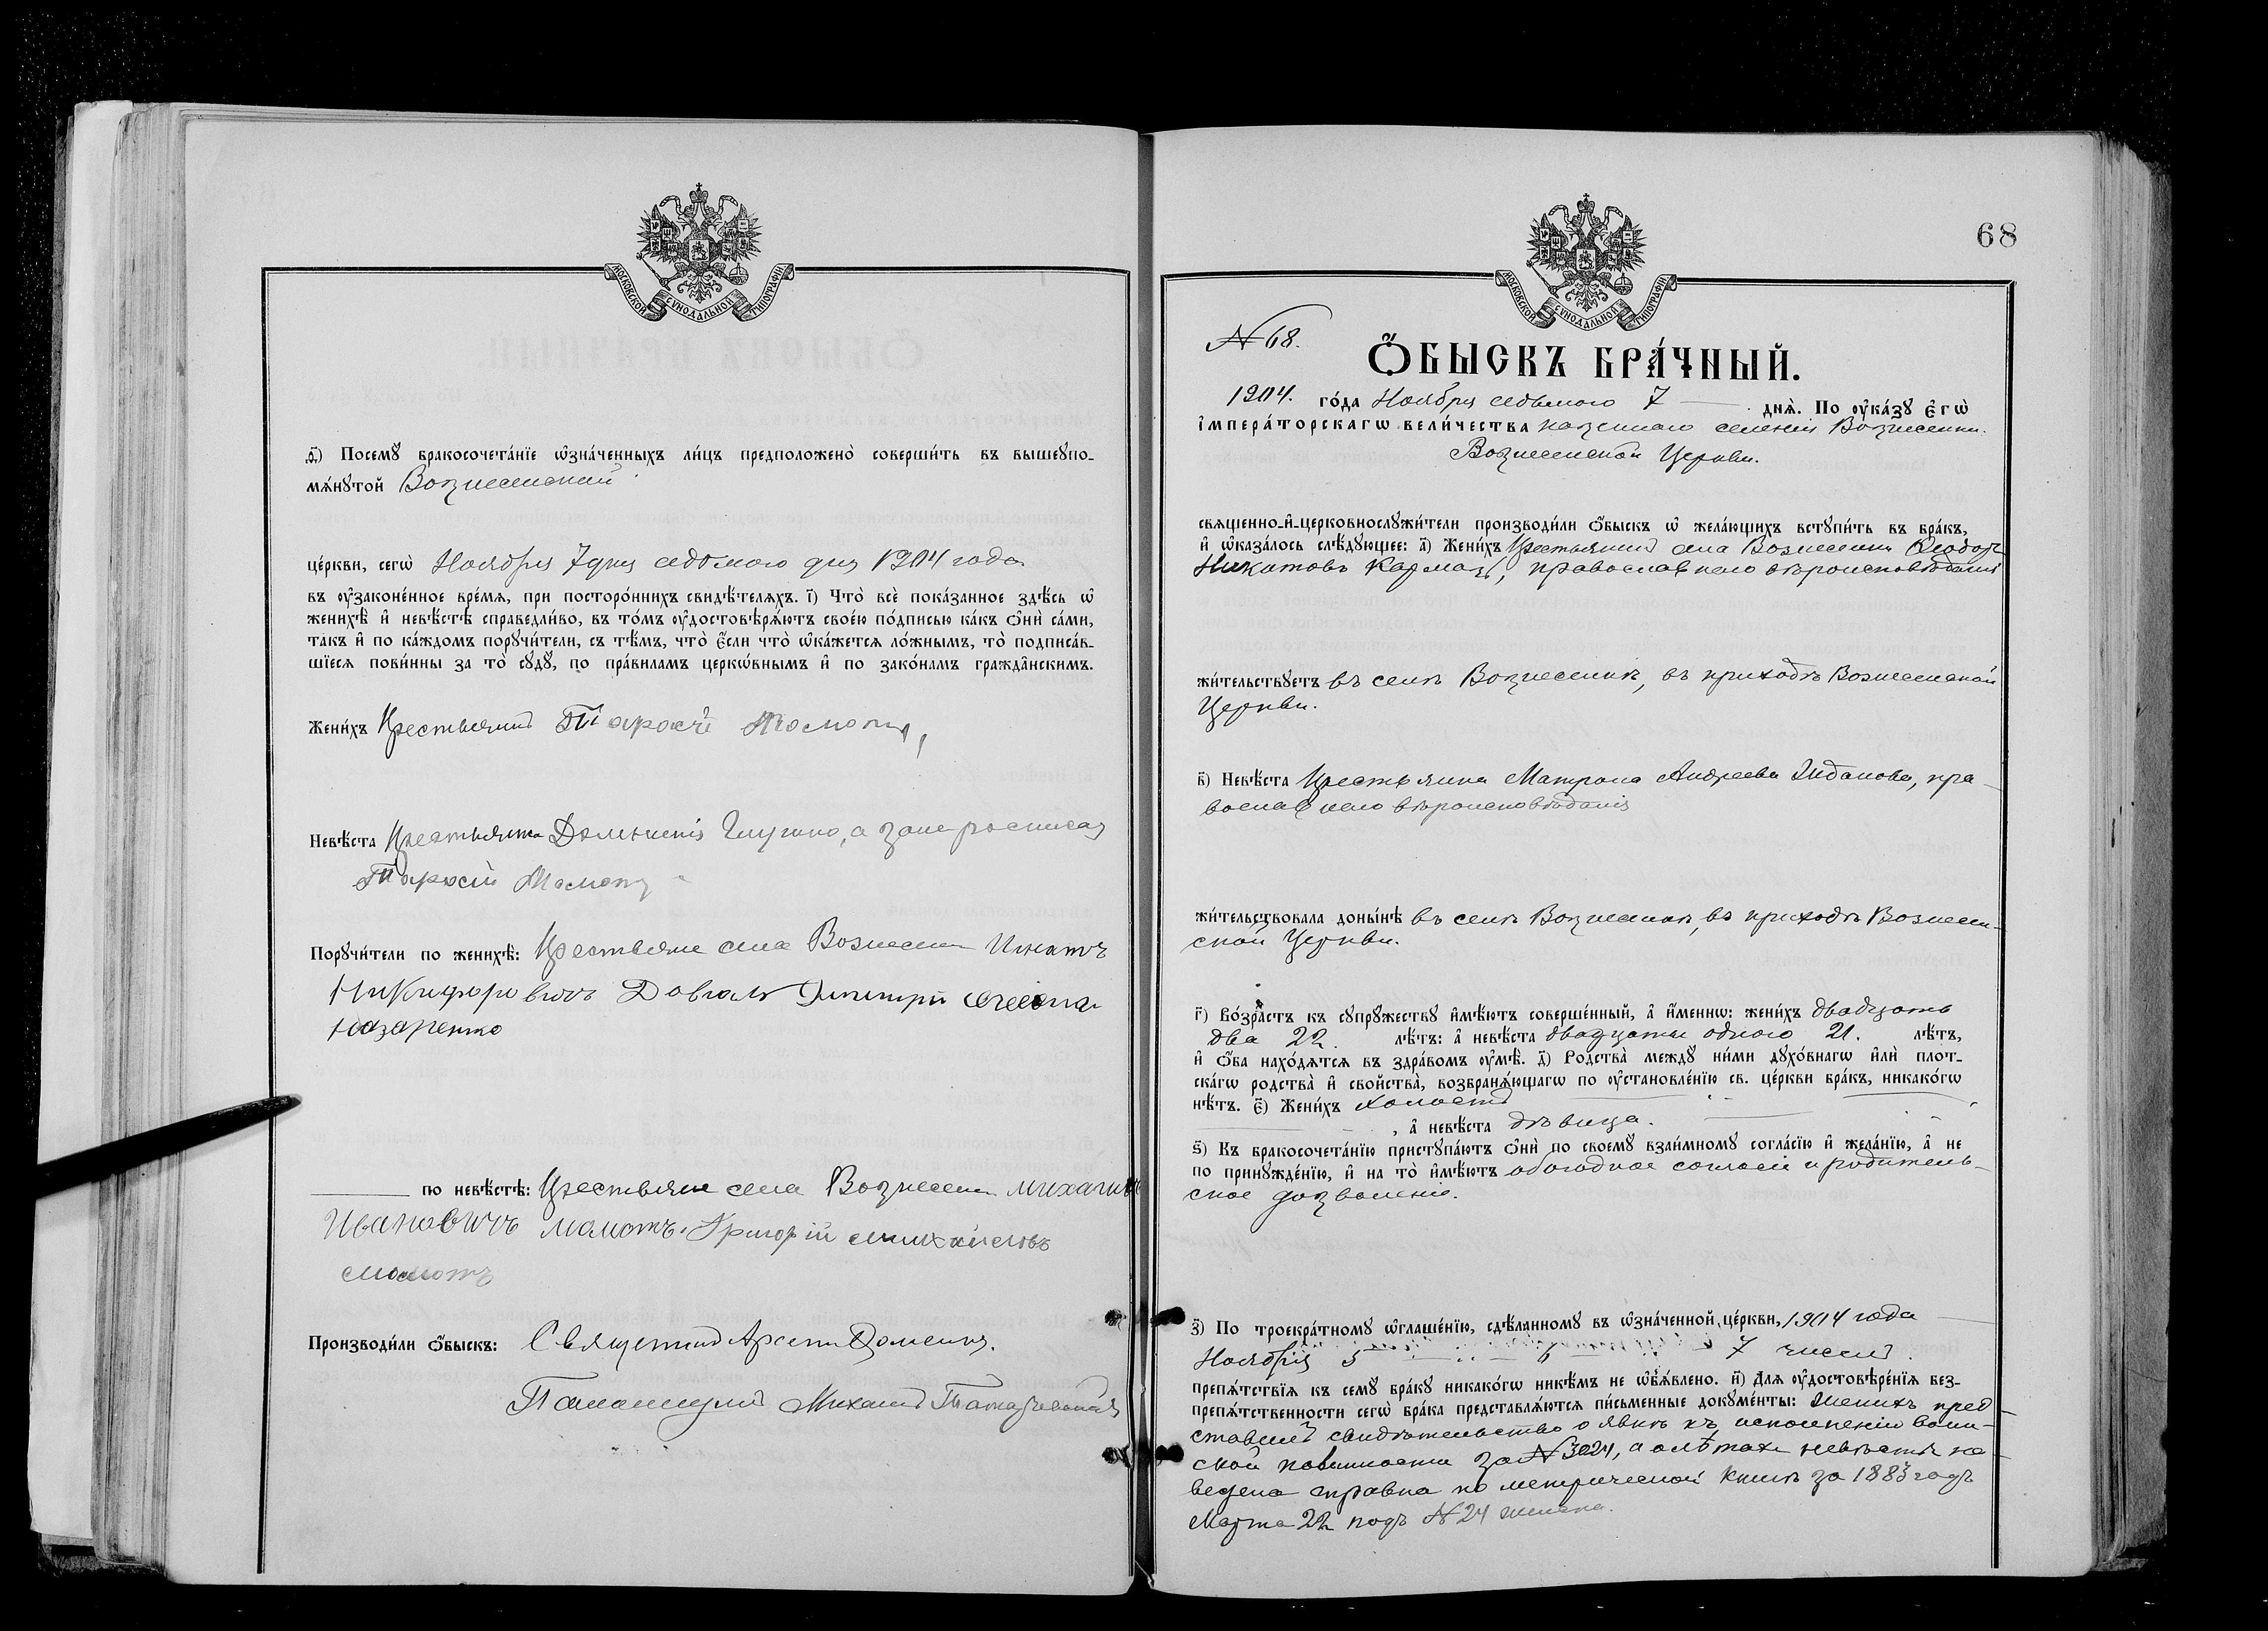 МОСКОВСКОЙ СУНОДАЛЬНОЙ ТИПОГРАФІИ
ѳ҃) Посемꙋ бракосочета́нїе ѡ҆зна́ченныхъ ли́цъ предположено̀ соверши́ть въ вышеꙋпо-
мѧ́нꙋтой Вознесенской
це́ркви, сегѡ̀ Ноября 7 дня седьмого дня 1904 года
въ ᲂу҆законе́нное вре́мѧ, при посторо́ннихъ свидѣ́телѧхъ. і҃) Что̀ всѐ пока́занное здѣ́сь ѡ҆
женихѣ̀ и҆ невѣ́стѣ справедли́во, въ то́мъ ᲂу҆достовѣрѧ́ютъ свое́ю по́дписью ка́къ ѻ҆нѝ са́ми,
та́къ и҆ по ка́ждомъ порꙋчи́тели, съ тѣ́мъ, что̀ є҆́сли что̀ ѡ҆ка́жется ло́жнымъ, то̀ подписа́в-
шїеся пови́нны за то̀ сꙋдꙋ̀, по пра́виламъ церкѡ́внымъ и҆ по зако́намъ гражда̑нскимъ.
Жени́хъ Крестьянинъ Тарасій Мамотъ,
Невѣ́ста Крестьянка а за нее росписался
Тарасій Мамотъ
Порꙋчи́тели по женихѣ̀: Крестьяне села Вознесенки Игнатъ
Никифоровичъ Довгаль Дмитрій
Назаренко
по невѣ́стѣ: Крестьяне села Вознесенки Михаилъ
Ивановичъ Мамотъ, Григорій Михайловъ
Мамотъ
Производи́ли ѻ҆́быскъ: Священникъ
Псаломщикъ Михаилъ
68
МОСКОВСКОЙ СУНОДАЛЬНОЙ ТИПОГРАФІИ
№ 68.
Ѻ҆́БЫСКЪ БРА́ЧНЫЙ.
1904. го́да Ноября седьмого 7 днѧ̀. По ᲂу҆ка́зꙋ є҆гѡ̀
і҆мпера́торскагѡ вели́чества казеннаго селенія Вознесенки.
Вознесенской Церкви.
свѧще́нно-и҆-церковнослꙋжи́тели производи́ли ѻ҆́быскъ ѡ҆ жела́ющихъ встꙋпи́ть въ бра́къ,
и҆ ѡ҆каза́лось слѣ́дꙋющее: а҃) Жени́хъ Крестьянинъ села Вознесенки Ѳеодоръ
Никитовъ Кармазь, православнаго вѣроисповѣданія
жи́тельствꙋетъ въ селѣ Вознесенкѣ, въ приходѣ Вознесенской
Церкви.
в҃) Невѣ́ста Крестьянка Матрона Андреева Жданова, пра-
вославнаго вѣроисповѣданія
жи́тельствовала доны́нѣ въ селѣ Вознесенкѣ, въ приходѣ Вознесен-
ской Церкви.
г҃) Во́зрастъ къ сꙋпрꙋжествꙋ и҆мѣ́ютъ соверше́нный, а҆ и҆́меннѡ: жени́хъ двадцать
два 22. лѣ́тъ: а҆ невѣ́ста двадцать одного 21. лѣ́тъ,
и҆ ѻ҆́ба нахо́дѧтсѧ въ здра́вомъ ᲂу҆мѣ̀. д҃) Родства̀ междꙋ ни́ми дꙋхо́внагѡ и҆лѝ плот-
ска́гѡ родства̀ и҆ свойства̀, возбранѧ́ющагѡ по ᲂу҆становле́нїю св. це́ркви бра́къ, никако́гѡ
нѣ́тъ. є҃) Жени́хъ холостъ
, а҆ невѣ́ста дѣвица.
ѕ҃) Къ бракосочета́нїю пристꙋпа́ютъ ѻ҆нѝ по своемꙋ̀ взаи́мномꙋ согла́сїю и҆ жела́нїю, а҆ не
по принꙋжде́нїю, и҆ на то̀ и҆мѣ́ютъ обоюдное согласіе и родитель-
ское дозволеніе.
з҃) По троекра́тномꙋ ѡ҆глаше́нїю, сдѣ́ланномꙋ въ ѡ҆зна́ченной це́ркви, 1904 года
Ноября 5 6 7 чиселъ.
препѧ́тствїѧ къ семꙋ̀ бра́кꙋ никако́гѡ никѣ́мъ не ѡ҆б̾ѧ́влено. и҃) Для ᲂу҆достовѣре́нїѧ без-
препѧ́тственности сегѡ̀ бра́ка представлѧ́ютсѧ пи́сьменные докꙋме́нты: Женихъ пред-
ставилъ свидѣтельство о явкѣ къ исполненію воин-
ской повинности за № 3024, а о лѣтахъ невѣсты на-
ведена справка по метрической книгѣ за 1883 годъ
Марта 22 подъ № 24